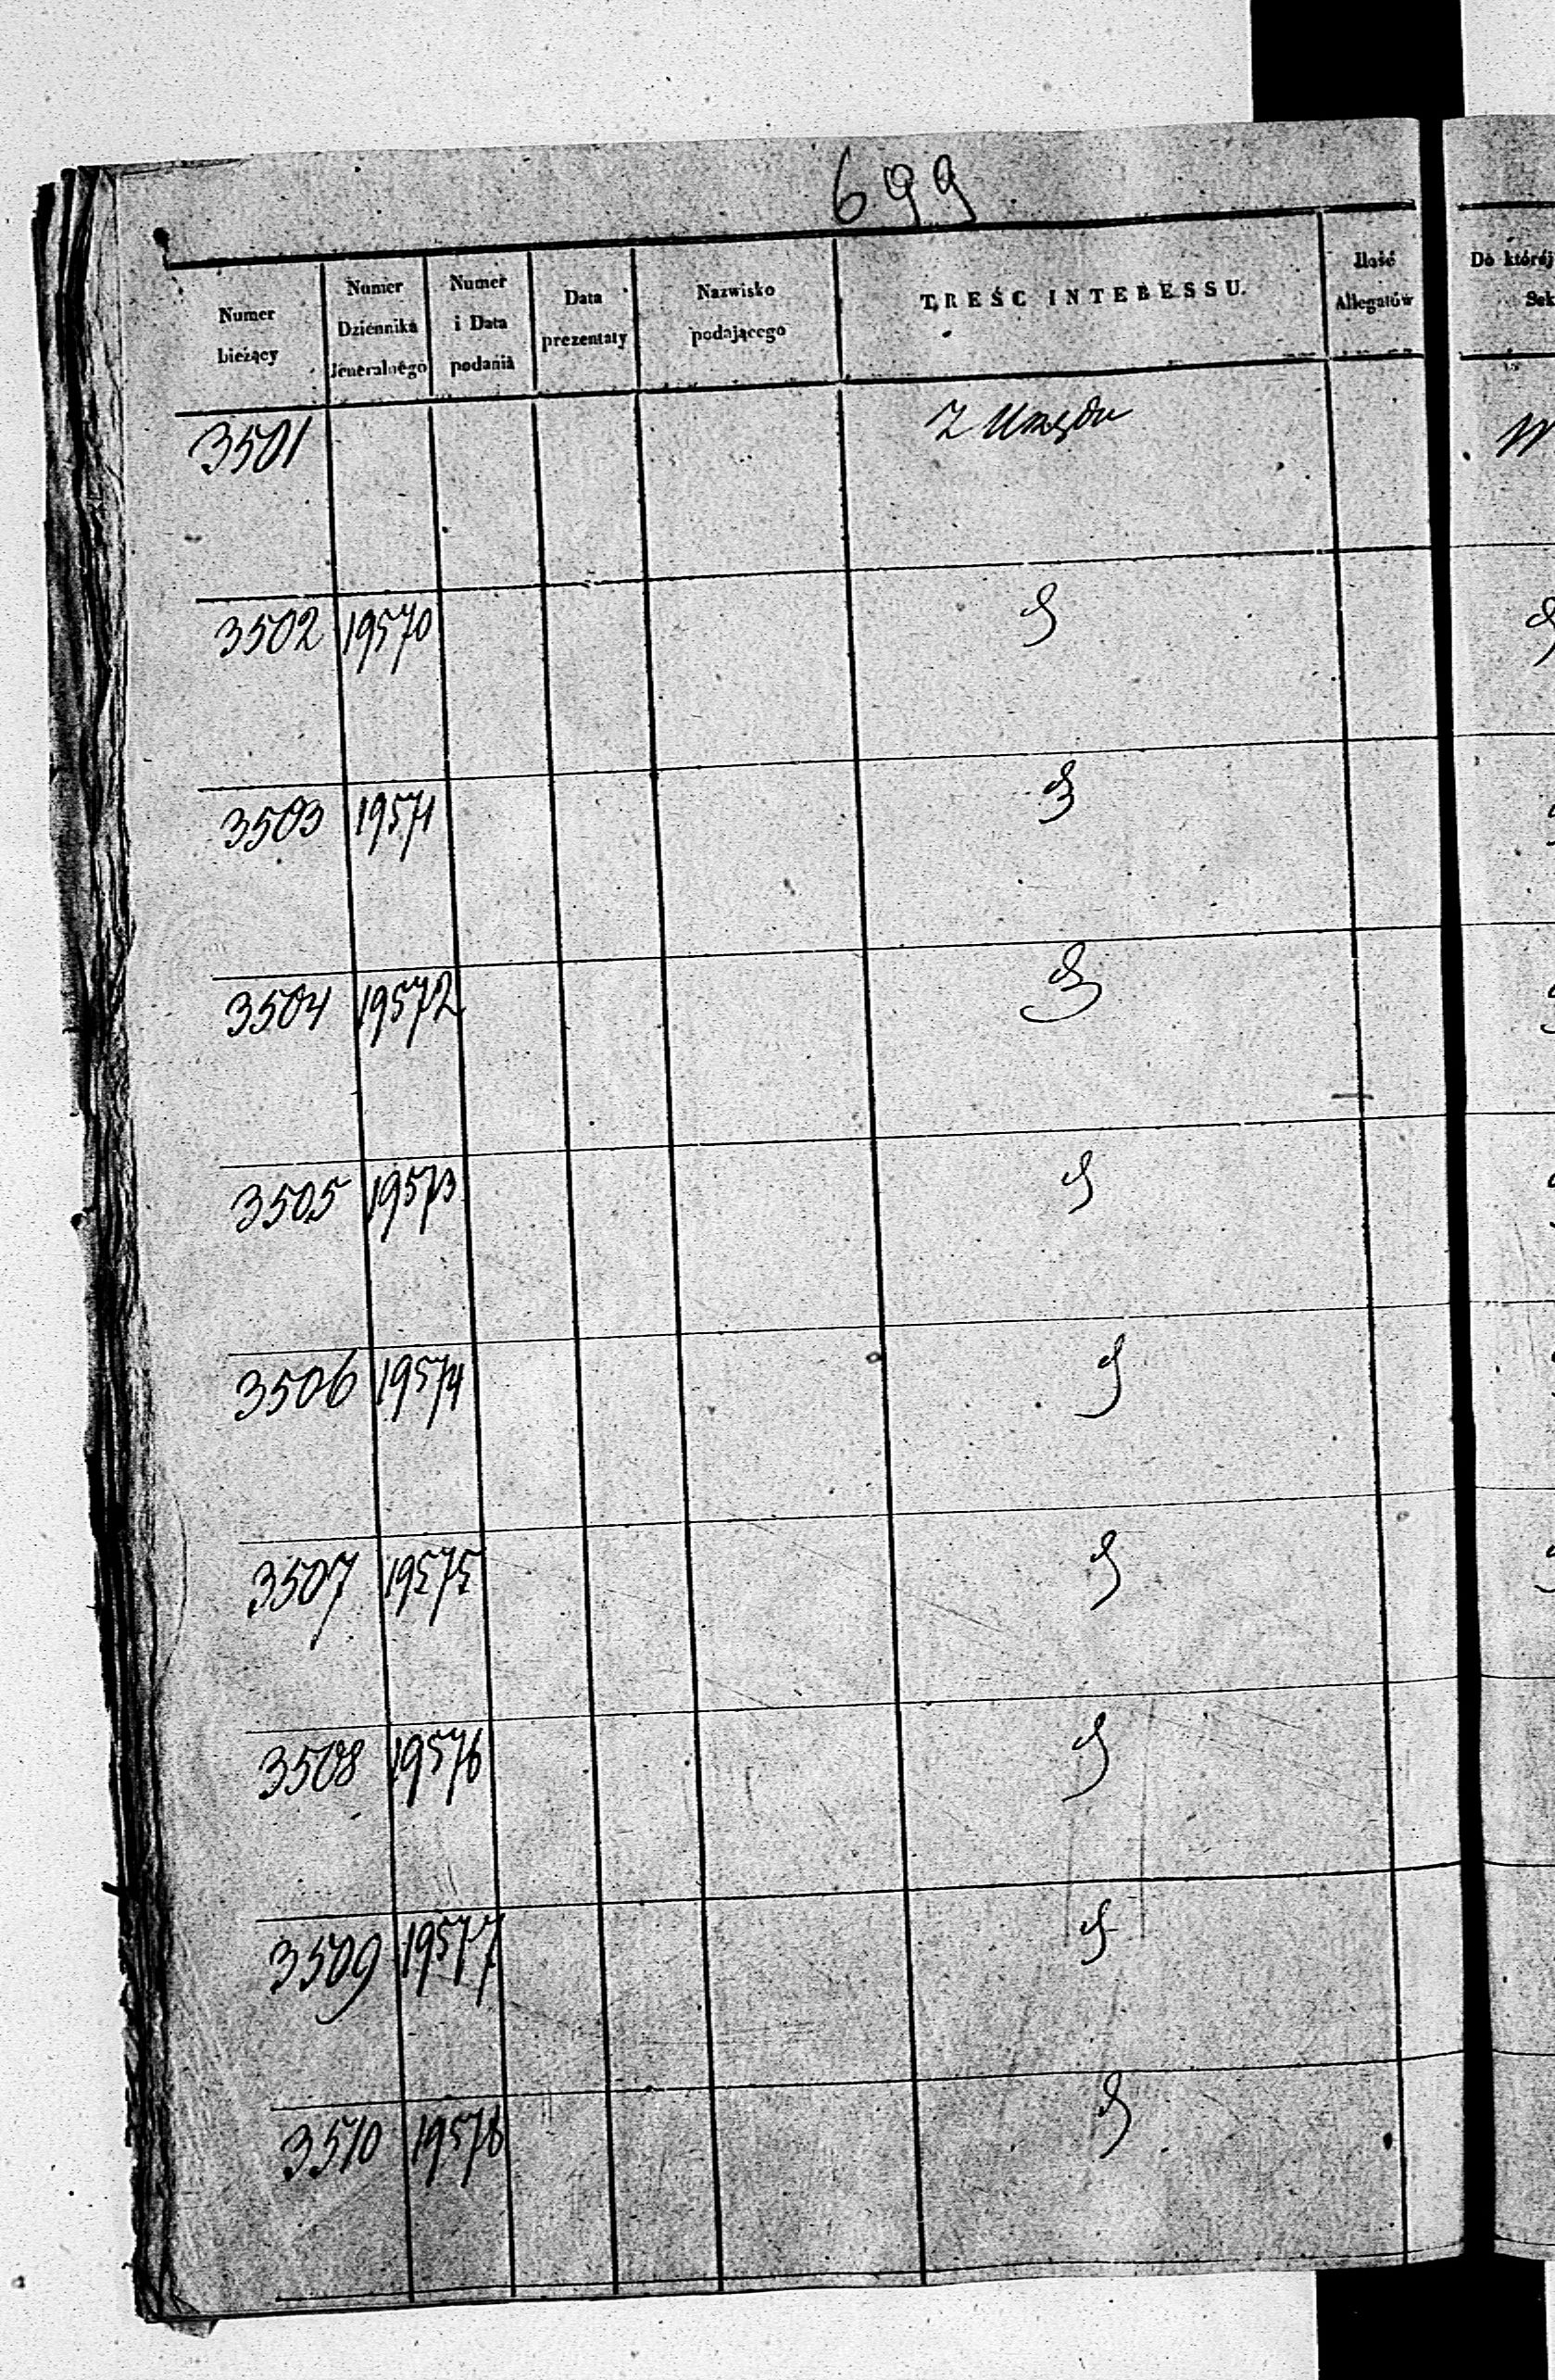 699
Numer bieżący | Numer Dziennika Jeneralnego | Numer i Data podania | Data prezentaty | Nazwisko podającego | TREŚĆ INTERESSU. | Ilość Allegatów | Do którój Sek
3501 Z Urzędu
3502 19570
3503 19571
3504 19572
3505 19573
3506 19574
3507 19575
3508 19576
3509 19577
3510 19578